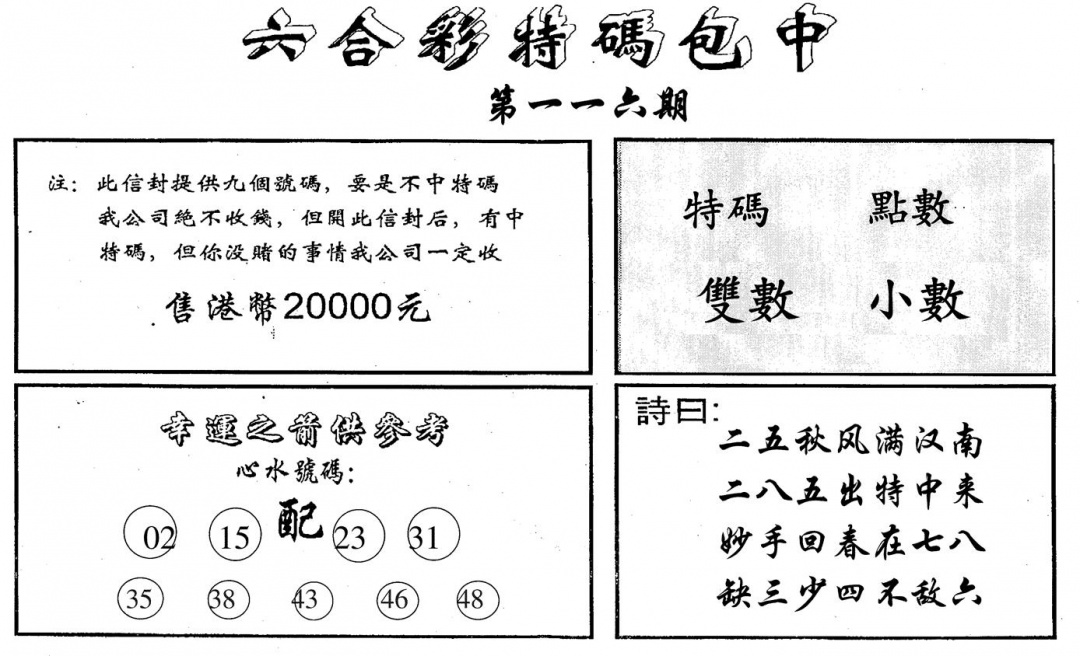 六合彩特碼包中
第一一六期
注：此信封提供九個號碼，要是不中特碼
我公司絕不收錢，但開此信封后，有中
特碼，但你没賭的事情我公司一定收
售港幣20000元
特碼 點數
雙數 小數
幸運之箭供參考
心水號碼：
配
02 15 23 31
35 38 43 46 48
詩曰：
二五秋风满汉南
二八五出特中来
妙手回春在七八
缺三少四不敌六